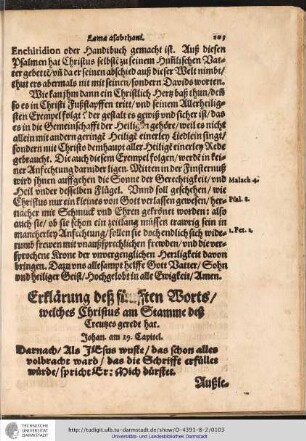 Lama asabthani. 103
Enchiridion oder Handtbuch gemacht ist. Auß diesen
Psalmen hat Christus selbst zu seinem Himlischen Vat-
ter gebetet/ vñ da er seinen abschied auß dieser Welt nimbt/
thut ers abermals nit mit seinen/sondern Davids worten.
Wie kan jhm dann ein Christlich Hertz baß thun/deñ
so es in Christi Fußstapffen tritt/und seinem Allerheilig-
sten Exempel folgt? der gestalt es gewiß und sicher ist/das
es in die Gemeinschafft der Heiligen gehöre/weil es nicht
allein mit andern geringẽ Heiligẽ einerley Liedlein singt/
sondern mit Christo dem haupt aller Heiligẽ einerley Rede
gebraucht. Die auch diesem Exempel folgen/werden in kei-
ner Anfechtung darnider ligen. Mitten in der Finsternuß
wird jhnen auffgehen die Sonne der Gerechtigkeit/und Malach 4.
Heil under desselben Flügel. Unnd soll geschehen/ wie
Christus nur ein kleines von Gott verlassen gewesen/her- Psal. 8.
nacher mit Schmuck und Ehren gekrönet worden: also
auch sie/ ob sie schon ein zeitlang müssen trawrig sein in 1. Pet. 1.
mancherley Anfechtung/sollen sie doch endlich sich wide-
rumb frewen mit unaußsprechlichen frewden/und die ver-
sprochene Krone der unvergenglichen Herrligkeit davon
bringen. Dazu uns allesampt helffe Gott Vatter/ Sohn
und heiliger Geist/ Hochgelobt in alle Ewigkeit/ Amen.
Erklärung deß fünfften Worts/
welches Christus am Stamme deß
Creutzes geredt hat.
Johan. am 19. Capitel.
Darnach/ Als JEsus wuste/ das schon alles
volbracht ward/ das die Schrifft erfüllet
würde/ spricht Er: Mich dürstet.
Außle-
http://tudigit.ulb.tu-darmstadt.de/show/O-4391-8-2/0103
Universitäts- und Landesbibliothek Darmstadt